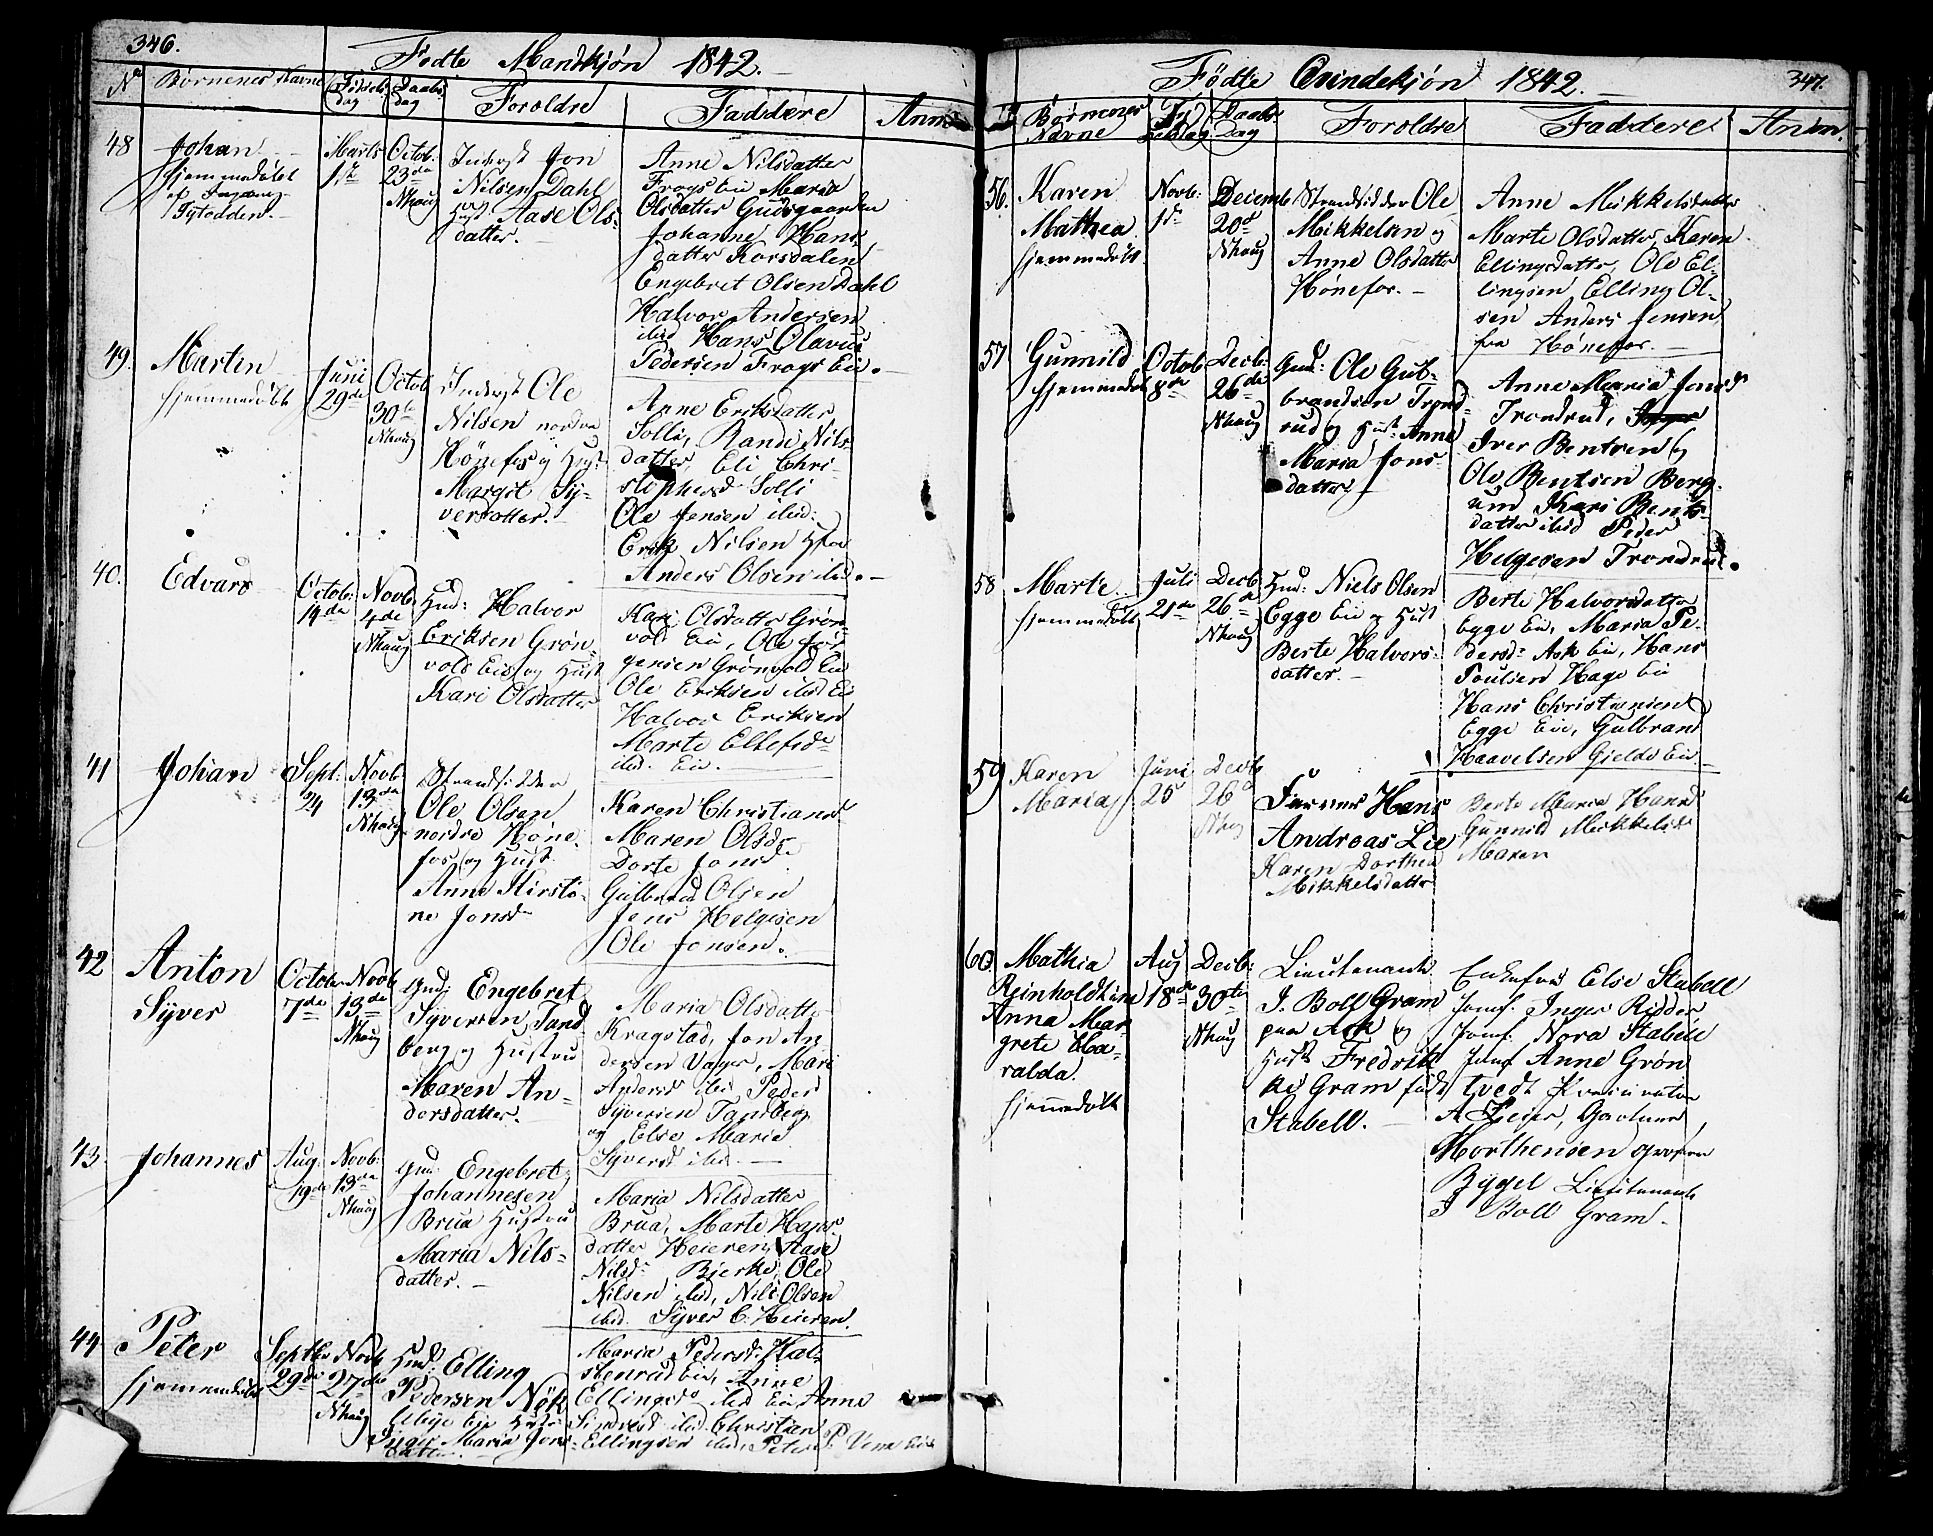 346.
Fødte Mandkjøn 1842.
No Børnenes Navne Fødsels Dag Daabs Dag Foroldre Faddere Anm
48 Johan hjemmedøbt Tytedden.
Marts 1ste
Octob: 23de Nhaug
Inderst Jon
Nilsen Dahl
og Hust. Aase Ols-
datter.
Anne Nilsdatter
Frogs Eie Maria
Olsdatter Gudsgaarden
Johanne Hans-
datter Korsdalen
Engebret Olsen Dahl
Halvor Andersen
ibid Hans Olavus
Pedersen Frogs Eie.
49. Martin
hjemmedøbt
Juni 29de
Octob 30te Nhaug
Inderst Ole
Nilsen nordre
Hønefos og Hust
Margit Sy-
versdatter.
Anne Eriksdatter
Solli, Randi Nils
datter, Eli Chri-
stophersd Solli
Ole Jensen ibid:
Erik Nilsen
Anders Olsen ibid.
40. Edvard
Octob: 14de
Novb 4de Nhaug
Hud: Halvor
Eriksen Grøn-
vold Eie og Hust
Kari Olsdatter
Kari Olsdatter Grøn-
vold Eie, Ole Jør-
gensen Grønvold Eie
Ole Eriksen ibid Eie
Halvor Eriksen
Marte Ellefsd
ibid. Eie.
41 Johan
Sept: 24
Novb 13de Nhaug
Strandsidder
Ole Olsen
nordre Høne-
fos og Hust
Anne Kirsti-
ne Jonsd
Karen Christiansd
Maren Olsd
Dorte Jonsd
Gulbrand Olsen
Jens Helgesen
Ole Jonsen.
42 Anton
Syver
October 7de
Novb 13de Nhaug
Gmd: Engebret
Syversen Tand
berg og Hustru
Maren An-
dersdatter.
Maria Olsdatter
Kragstad, Jon An-
dersen Vager, Mari
Andersd ibid Peder
Syversen Tandberg
og Else Maria
Syversd ibid.
43. Johannes
Aug: 19de
Novb: 13de Nhaug
Gmd: Engebret
Johannesen
Brua Hustru
Maria Nils-
datter.
Maria Nilsdatter
Brua, Marte Hans
datter Heieren, Aase
Nilsd Bjerke, Ole
Nilsen ibid, Nils Olsen
ibid. Syver C. Heieren.
44 Peter
hjemmedøbt
Septbr 29de
Novb 27de Nhaug
Hmd: Elling
Pedersen Nøk
leby Eie Hustru
Inger Maria Jons-
datter.
Maria Pedersd: Hal-
stenrud Eie, Anne
Ellingsd ibid Eie, Anne
ibid. Christian
Ellingsen ibid, Peter P. Vem Eie
347.
Fødte Qvindekjøn 1842.
No Børnenes Navne Fødselsdag Daabs Dag Foroldre Faddere Anm.
56. Karen
Mathea
hjemmedøbt.
Novb: 1ste
Decemb 20de Nhaug
Strandsidder Ole
Mikkelsen og
Anne Olsdatter
Hønefos.
Anne Mikkelsdatter
Marte Olsdatter, Karen
Ellingsdatter, Ole El-
lingsen Elling Ol-
sen Anders Jensen
fra Hønefos.
57 Gunnild
hjemmedøbt
Octob 8de
Decb: 26de Nhaug
Gmd: Ole Gul-
brandsen Trond-
rud og Hust Anne
Maria Jons-
datter.
Anne Maria Jonsd
Trondrud,
Iver Bentsen og
Ole Bentsen Berg-
um Kari Bents-
datter ibid Peder
Helgesen Trondrud.
58 Marte
hjemmedøbt
Juli 21de
Decb 26de Nhaug
Hmd: Niels Olsen
Egge Eie og Hust
Berte Halvors-
datter.
Berte Halvorsdatter
Egge Eie, Maria Pe-
dersd: Ask Eie, Hans
Poulsen Hage Eie
Hans Christiansen
Egge Eie, Gulbrand
Haavelsen Gjelde Eie
59 Karen
Maria
Juni 25
Decb 26 Nhaug
Farver Hans
Andreas Lie
Karen Dorthea
Mikkelsdatter
Berte Maria Hansd
Gunnild Mikkelsd
Maren
60. Mathia
Reinholdhine
Anna Mar-
grete Ha-
ralda.
hjemmedøbt
Aug 18de
Decb: 30te Nhaug
Lieutenant
I. Boll Gram
paa Ask og
Hust Fredrik
ke Gram født
Stabell.
Enkefru Else Stabell
Jomf. Inger Ridder
Jomf. Nora Stabell
Jomf Anne Grøn
tvedt Procurator
A Leier, Gartner
Morthensen
Bygel Lieutenant
I Boll Gram.